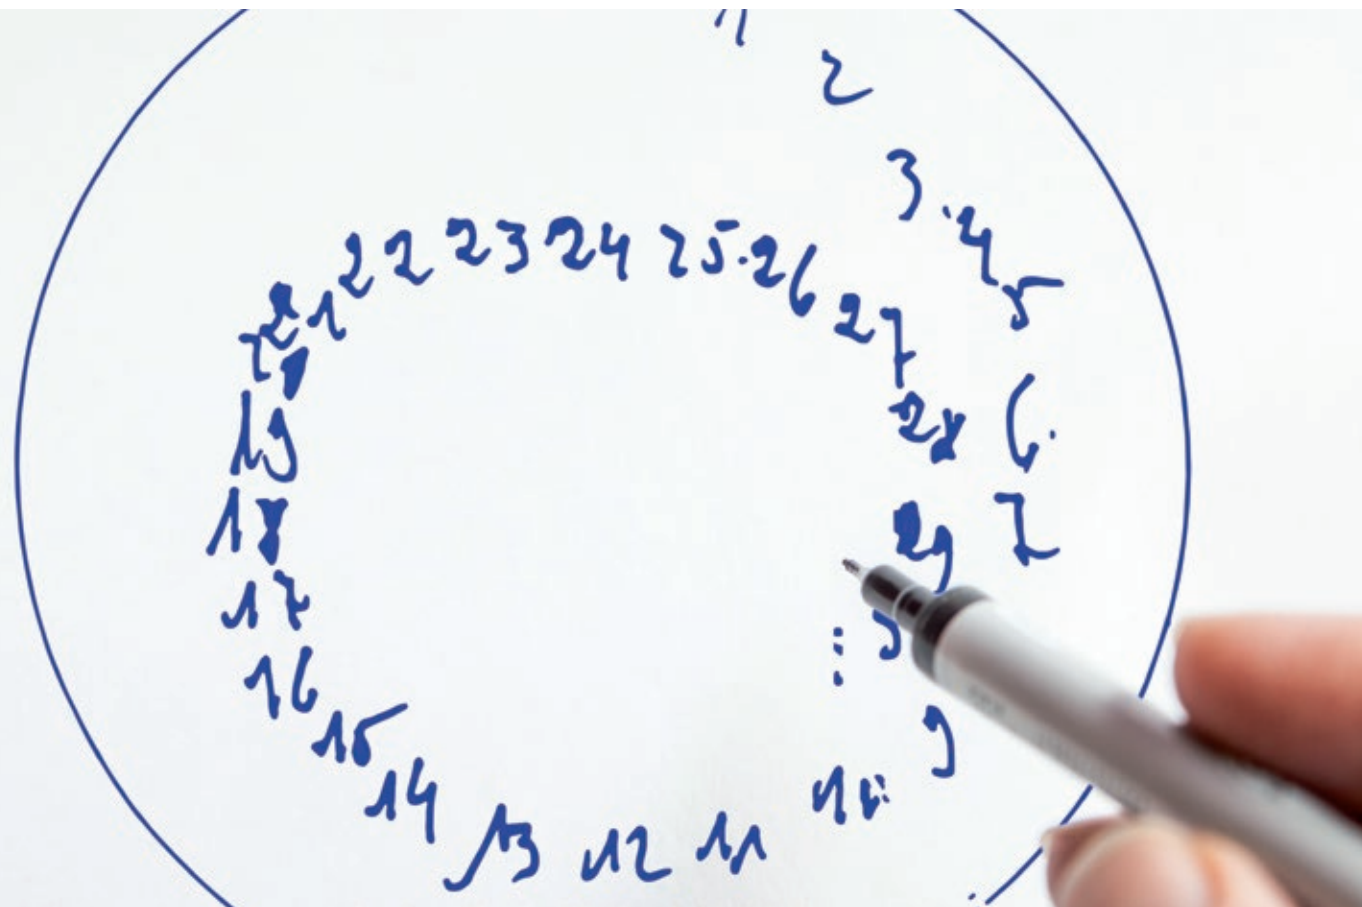 1
2
3.
4
5
6.
7
9
10
11
12
13
14
15
16
17
18
19
20
21
22
23
24
25.
26
27
28
29